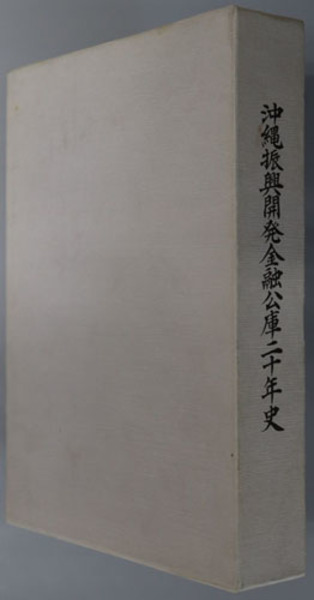 沖縄振興開発金融公庫二十年史